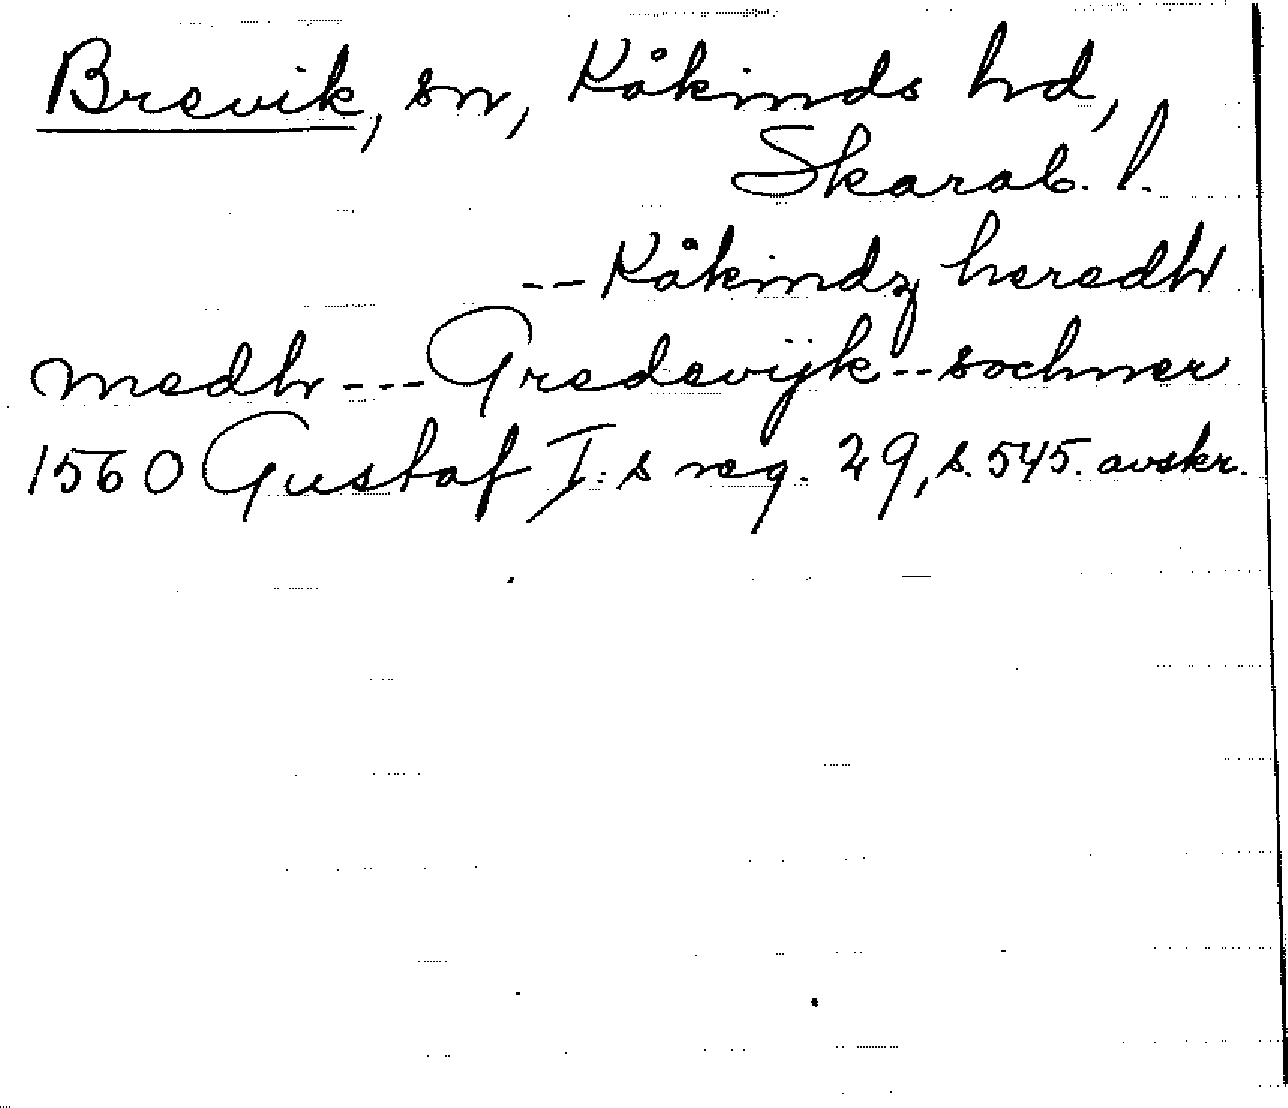 Brevik, sn, Kåkinds hd,
Skarab. l.
-- Kåkindz heredh
medh --- Gredevijk -- sochner
1560 Gustaf I:s reg. 29, s. 545. avskr.